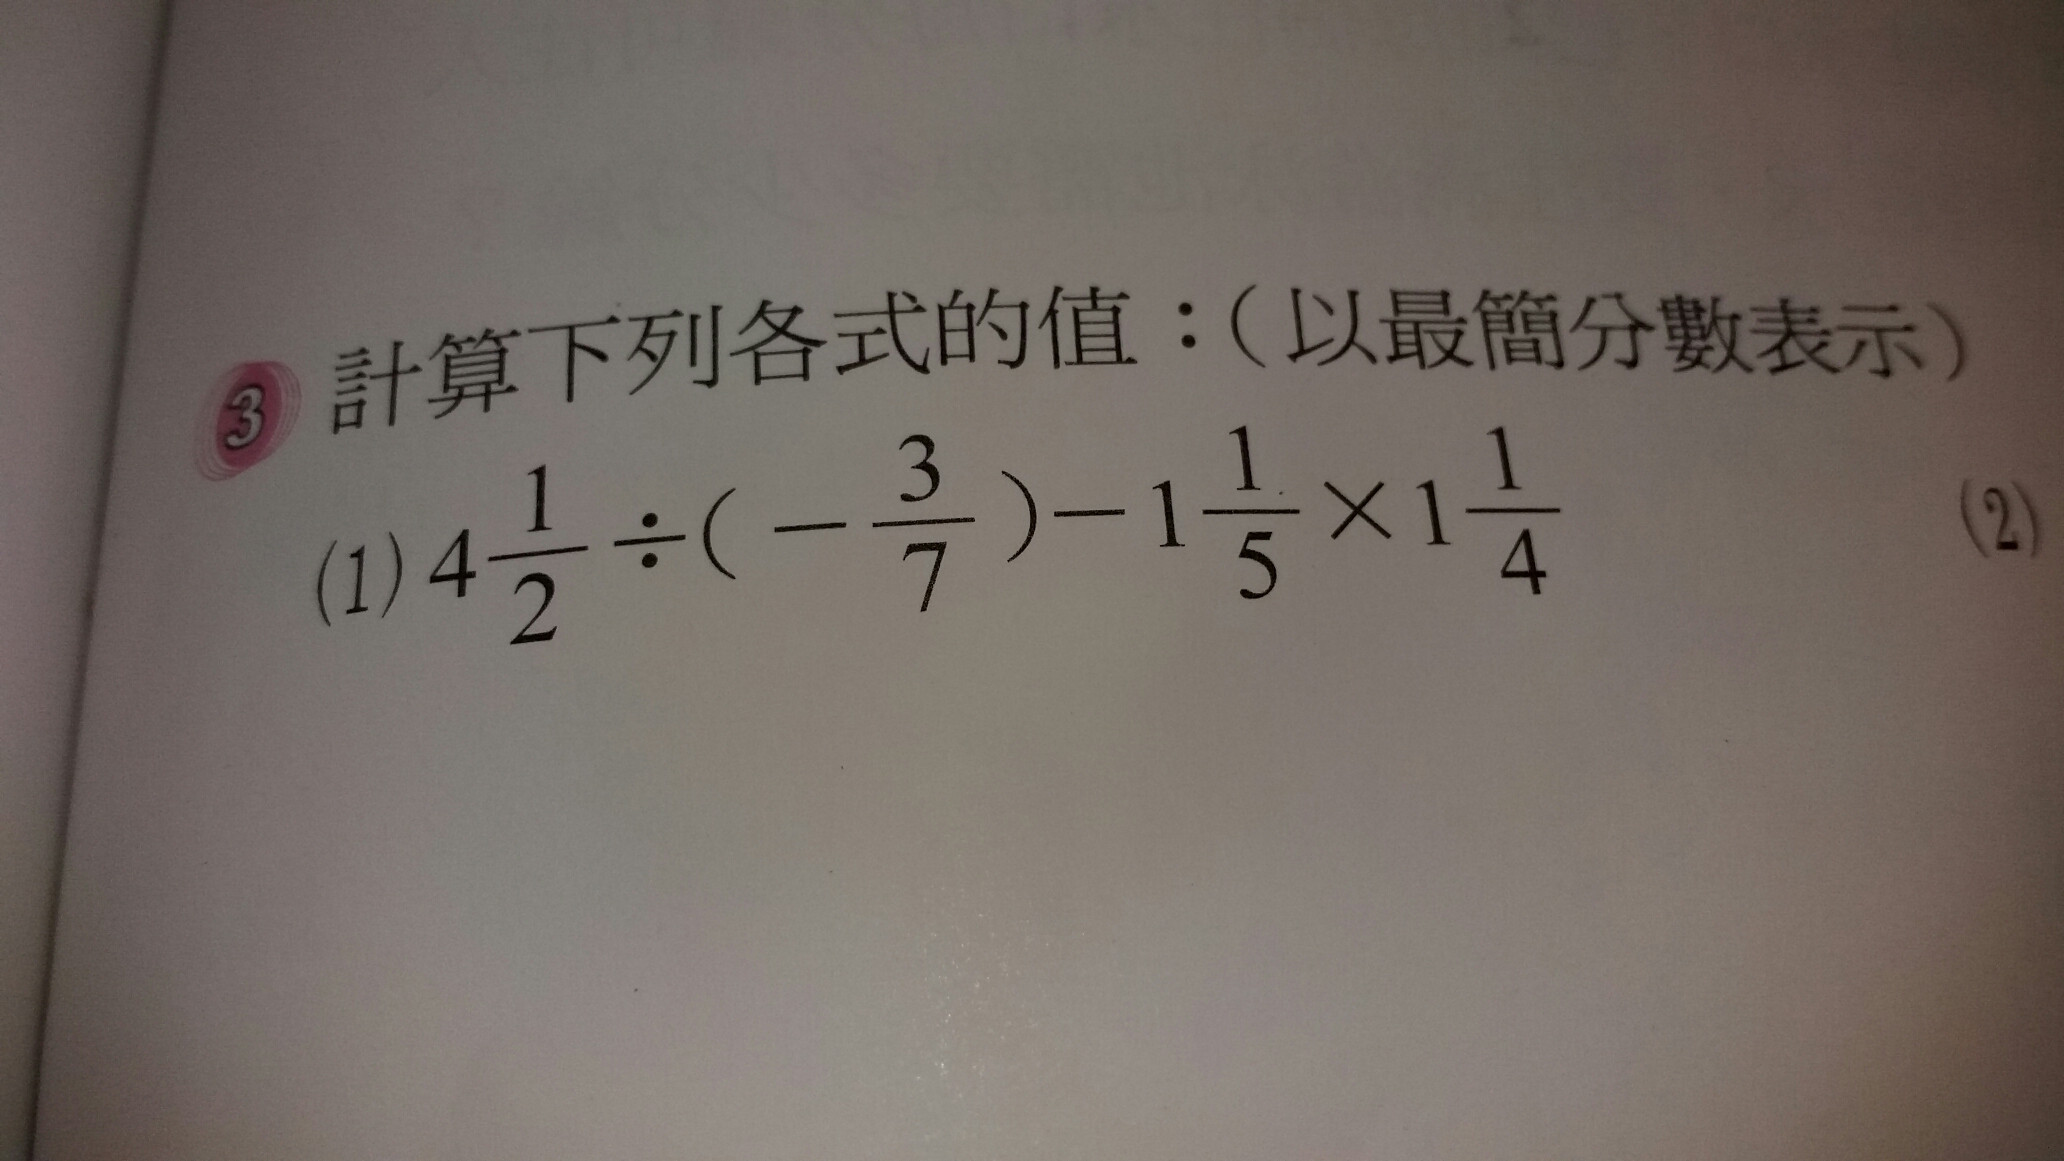 3 計算下列各式的值：(以最簡分數表示)
(1) 4 1/2 ÷ ( − 3/7 ) − 1 1/5 × 1 1/4 (2)